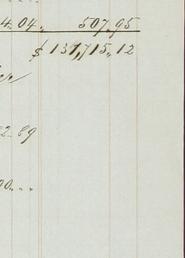 4.04.. 507.95
$ 137,715.12
2.89
00...